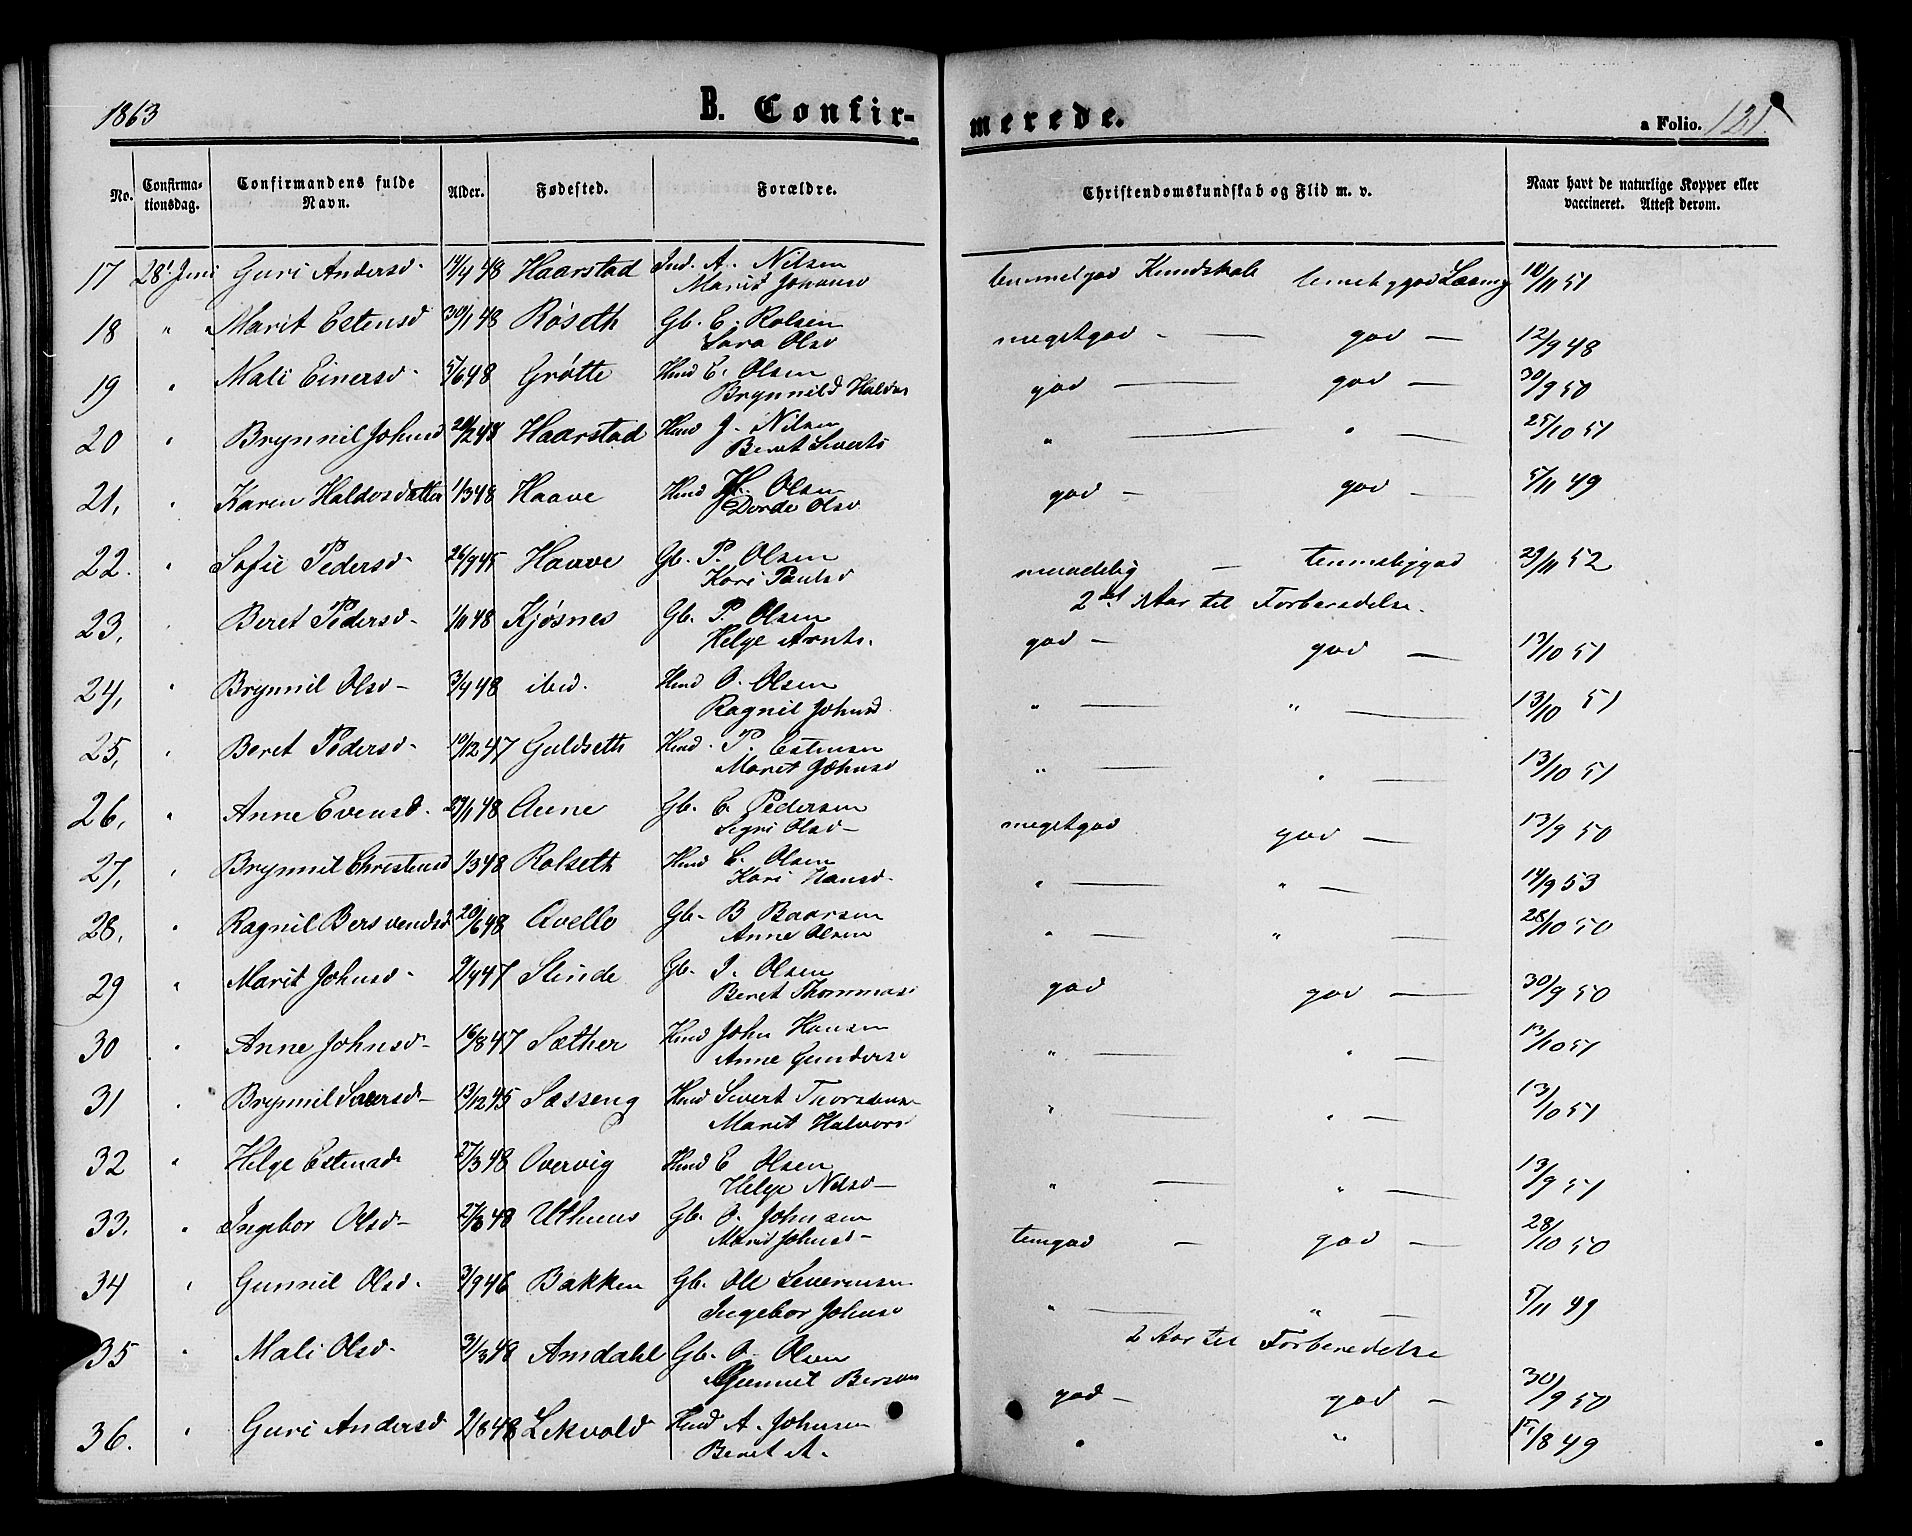 1863 B. Confir-
merede. a Folio. 121
No. Confirma-tionsdag. Confirmandens fulde Navn. Alder. Fødested. Forældre. Christendomskundskab og Flid m. v. Naar havt de naturlige Kopper eller vaccineret. Attest derom.
17 28 Juni Guri Andersd 14/4 48 Haarstad Ind. A. Nilsen temmelgod Kundskab temeligod Læsnig 10/11 51
Marid Johansd
18 " Marit Estensd 30/1 48 Røseth Gb. E. Rolsen megetgod — god — 12/9 48
Sara Olsd
19 " Mali Einersd 5/6 48 Grøtte Hmd E. Olsen god — god — 30/9 50
Brynnild Haldor
20 " Brynnil Johnsd 20/2 48 Haarstad Hmd J. Nilsen " — " — 25/10 51
Beret Siverts
21, " Karen Haldorsdatter 1/3 48 Haave Hmd H. Olsen god — god — 5/11 49
Dorde Olsd
22. " Sofie Pedersd 26/9 45 Haave Gb. P. Olsen maadelig — temmeliggod 29/11 52
Kari Paulsd 2det Aar til Forberedelse.
23, Beret Pedersd 1/11 48 Kjøsnes Gb. P. Olsen god — god — 13/10 51
Helge Arnts.
24, " Brynnil Olsd 3/4 48 ibid. Hmd O. Olsen " — " — 13/10 51
Ragnil Johnsd
25, " Beret Pedersd 10/12 47 Guldseth Hmd. P. Estensen " — " — 13/10 51
Marit Johnsd
26, " Anne Evensd. 29/1 48 Aune Gb. E. Pedersen megetgod god — 13/9 50
Sigri Olsd
27, " Brynnil Christensd 1/3 48 Rolseth Hmd C. Olsen " — " — 14/9 53
Kari Hansd
28, " Ragnil Bersvendsd 20/6 48 Avello Gb. B Baarsen " — " — 28/10 50
Anne Olsen
29 " Marit Johnsd 9/4 47 Slinde Gb. J. Olsen god god — 30/9 50
Beret Thommas
30 " Anne Johnsd 16/8 47 Sæther Hmd John Hansen " — " — 13/10 51
Anne Gundersd
31 " Brynnil Siversd 13/12 45 Sæsseng Hmd Sivert Thorstens " — " — 13/10 51
Marit Halvors
32 " Helge Estensd 27/3 48 Overvig Hmd E Olsen " — " — 13/9 51
Helge Nilsd
33. " Ingebor Olsd 27/3 48 Uthuus Gb. O. Johnsen temgod — god — 28/10 50
Marid Johnsd
34 " Gunnil Olsd. 3/9 46 Bakken Gb. Ole Severinsen " — " — 5/11 49
Ingebor Johnsd
35 " Mali Olsd. 3/3 48 Amdahl Gb. O. Olsen 2 Aar til Forberedelse
Gunnil Bersven god — god — 30/9 50
36. " Guri Andersd 9/8 48 Lekvold Hmd A. Johnsen " " 15/8 49
Beret A.